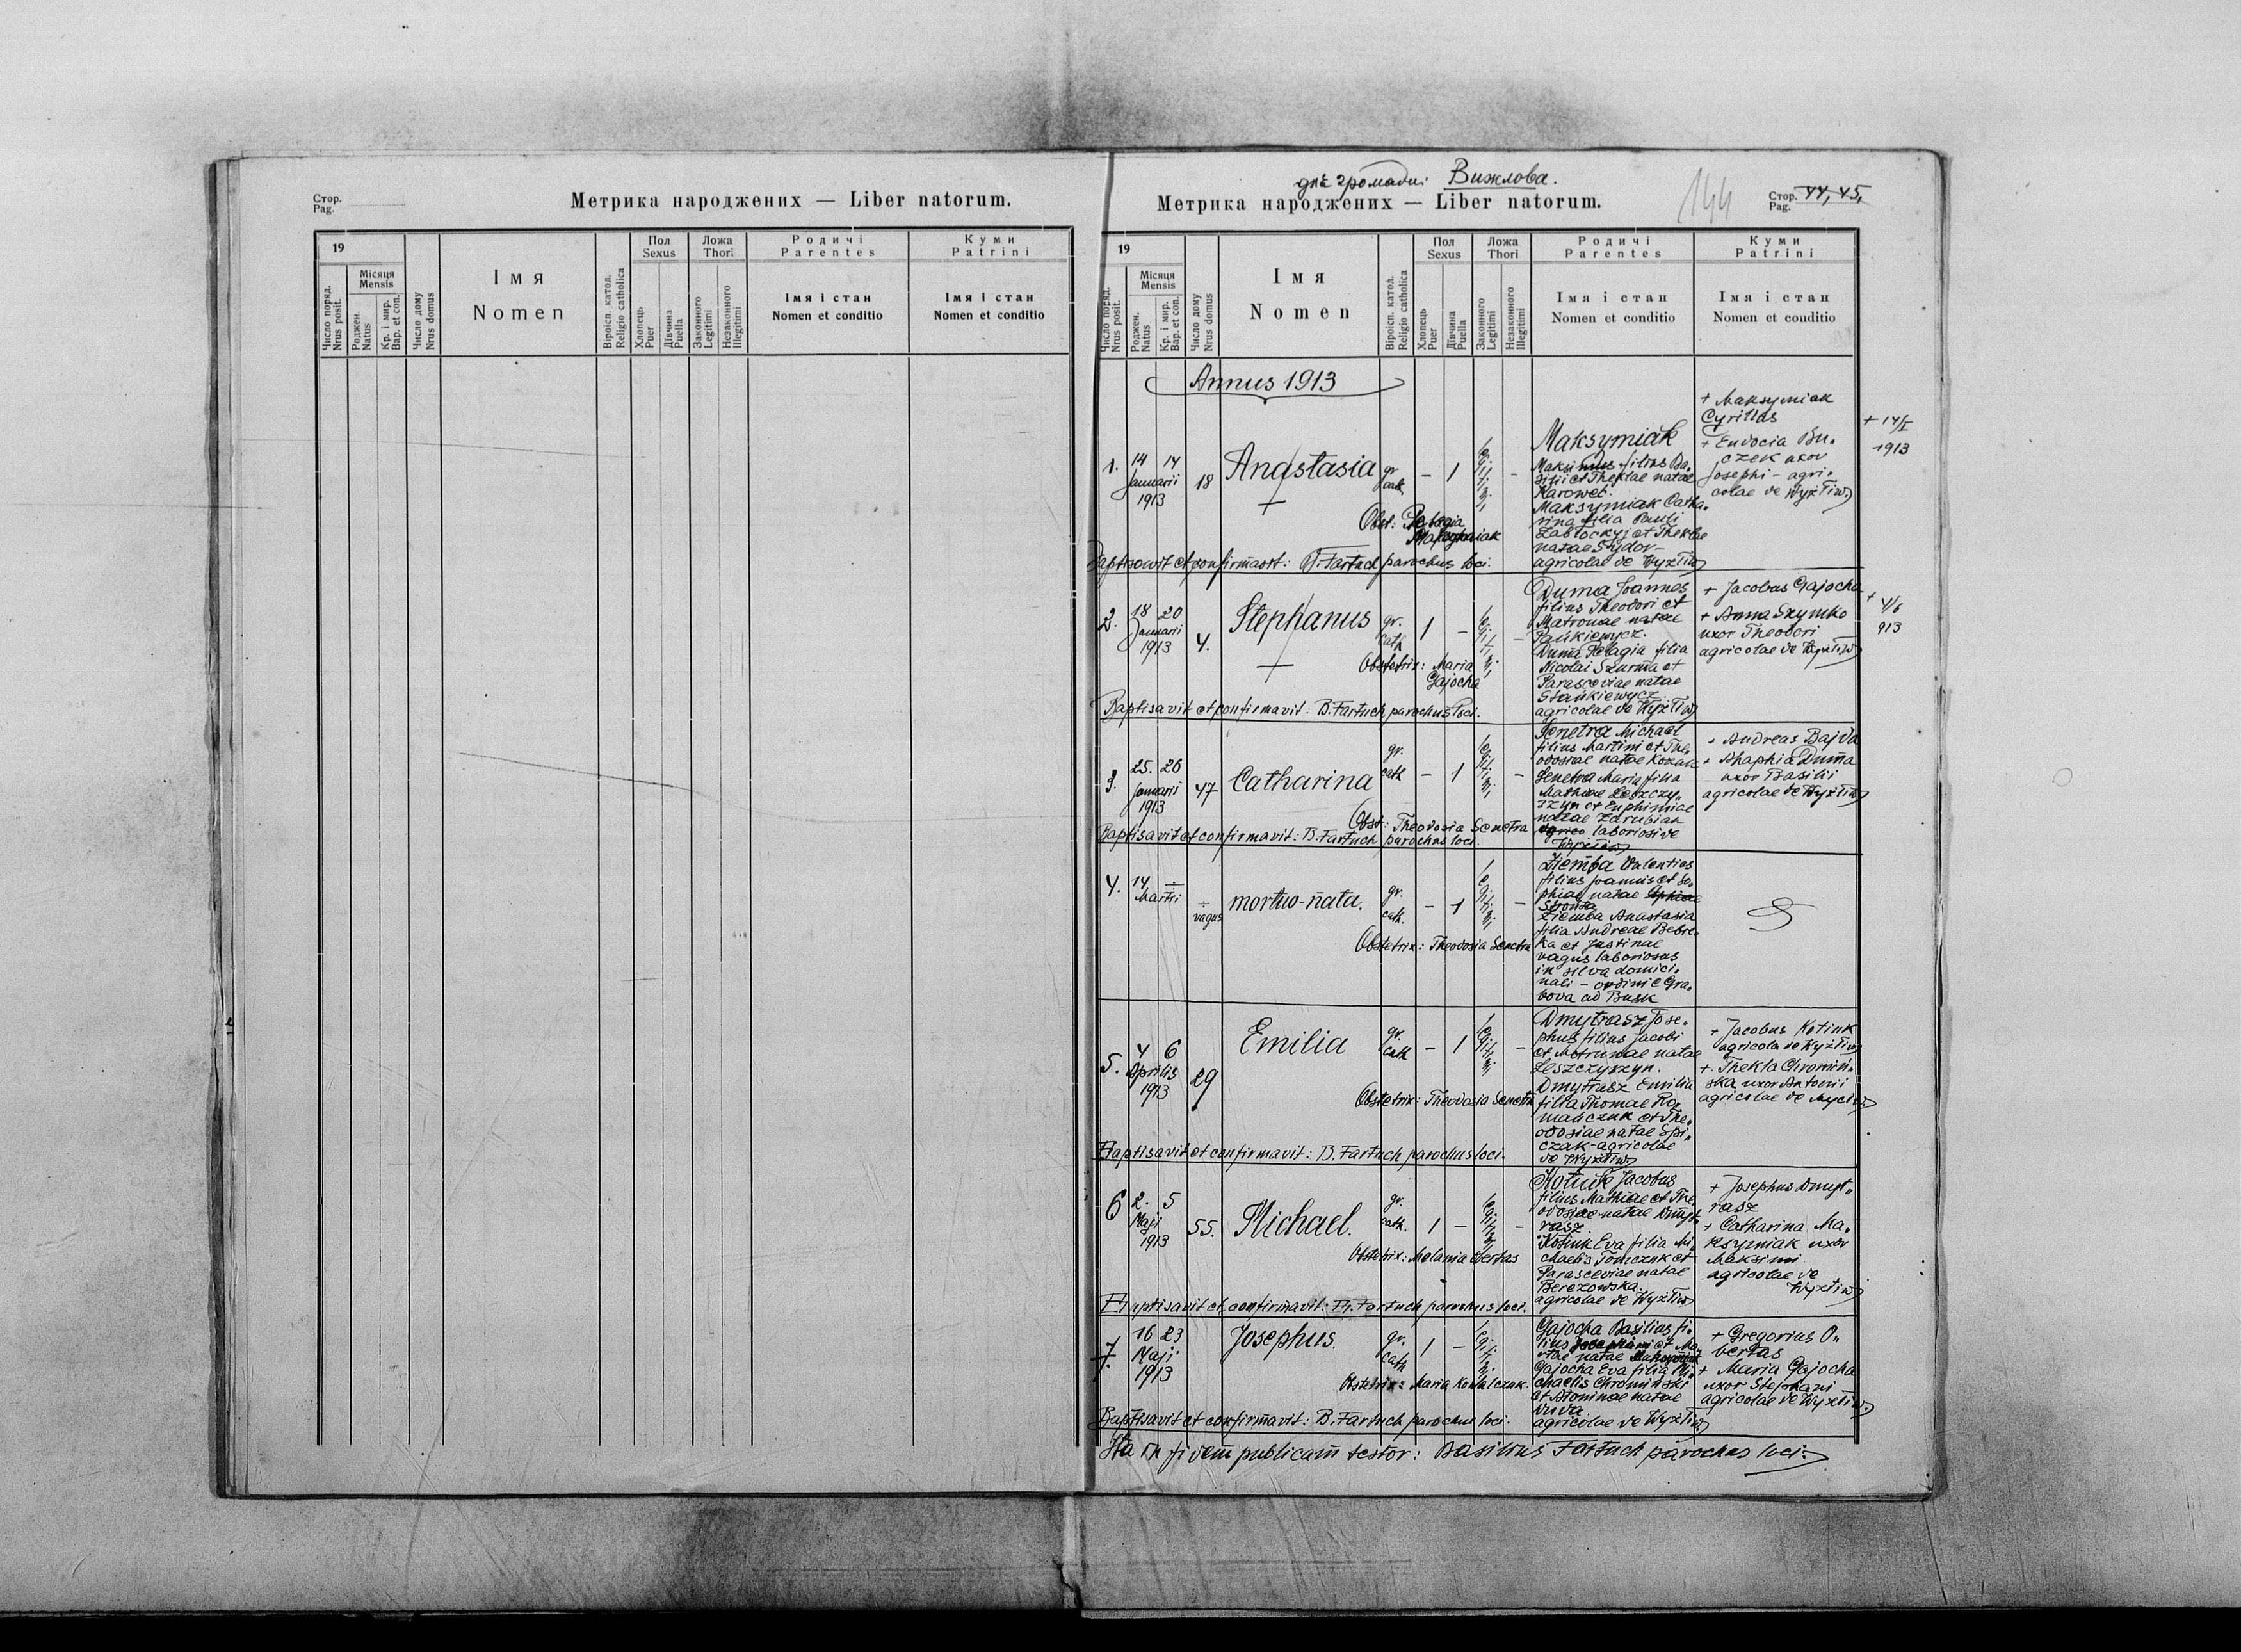 Стор.
Pag.
Метрика народжених — Liber natorum.
19
Місяця
Mensis
Число поряд.
Nrus posit.
Роджен.
Natus
Кр. і мир.
Bap. et con.
Число дому
Nrus domus
Імя
Nomen
Віроісп. катол.
Religio catholica
Пол
Sexus
Хлопець
Puer
Дівчина
Puella
Ложа
Thori
Законного
Legitimi
Незаконного
Illegitimi
Родичі
Parentes
Імя і стан
Nomen et conditio
Куми
Patrini
Імя і стан
Nomen et conditio
для громади: Вижлова.
Метрика народжених — Liber natorum.
144
Стор.
Pag.
44, 45,
19
Місяця
Mensis
Число поряд.
Nrus posit.
Роджен.
Natus
Кр. і мир.
Bap. et con.
Число дому
Nrus domus
Імя
Nomen
Віроісп. катол.
Religio catholica
Пол
Sexus
Хлопець
Puer
Дівчина
Puella
Ложа
Thori
Законного
Legitimi
Незаконного
Illegitimi
Родичі
Parentes
Імя і стан
Nomen et conditio
Куми
Patrini
Імя і стан
Nomen et conditio
Annus 1913
1.
14 14
Januarii
1913
18
Anastasia
gr.
cath
– 1
–
Maksymiak
Maksimus filius Ba„
silii et Theklae natae
Karowec.
Maksymiak Catha„
rina filia Pauli
Zabłockyj et Theklae
natae Sydor –
agricolae de Wyżłiw
+ Maksymiak
Cyrillus
+ Eudocia Bu„
czek uxor
Josephi – agri„
colae de Wyżłiw
+ 14/I
1913
Obst: Pelagia
Maksymiak
Baptisavit et confirmavit: B. Fartuch parochus loci.
2.
18 20
Januarii
1913
4.
Stephanus
gr.
cath
1 –
–
Duma Joannes
filius Theodori et
Matronae natae
Pańkiewycz.
Duma Pelagia filia
Nicolai Szurma et
Parasceviae natae
Stańkiewycz
agricolae de Wyżłiw
+ Jacobus Gajocha
+ Anna Szymko
uxor Theodori
agricolae de Wyżłiw
+ 4/6
913
Obstetrix: Maria
Gajocha
Baptisavit et confirmavit: B. Fartuch parochus loci.
3.
25. 26
Januarii
1913
47
Catharina
gr.
cath
– 1
–
Senetra Michael
filius Martini et The„
odosiae natae Kozak
Senetra Maria filia
Mathiae Leszczy„
szyn et Euphimiae
natae Zdrubian
laboriosi de
Wyżłiw
+ Andreas Bajda
+ Ahaphia Duma
uxor Basilii
agricolae de Wyżłiw
Obst: Theodosia Senetra
Baptisavit et confirmavit: B. Fartuch parochus loci.
4.
14
Martii
vagus
mortuo-nata.
gr.
cath.
– 1
–
Ziemba Valentius
filius Joannis et So„
phiae natae
Ziemba Anastasia
filia Andreae Bebre„
ka et Justinae
vagus laboriosus
in silva domini„
nali – ordini e Gra„
bova ad Busk
Obstetrix: Theodosia Senetra
5.
4 6
Aprilis
1913
29
Emilia
gr.
cath
– 1
–
Dmytrasz Jose„
phus filius Jacobi
et Motrunae natae
Leszczyszyn.
Dmytrasz Emilia
filia Thomae Ro„
mańczuk et The„
odosiae natae Spi„
czak – agricolae
de Wyżłiw
+ Jacobus Kotiuk
agricola de Wyżłiw
+ Thekla Chromiń„
ska uxor Antonii
agricolae de Wyżłiw
Obstetrix: Theodosia Senetra
Baptisavit et confirmavit: B. Fartuch parochus loci.
6
2. 5
Maji
1913
55.
Michael.
gr.
cath.
1 –
–
Kotiuk Jacobus
filius Mathiae et The„
odosiae natae Dmyt„
rasz
Kotiuk Eva filia Mi„
chaelis Tomczuk et
Parasceviae natae
Berezowska.
agricolae de Wyżłiw
+ Josephus Dmyt„
rasz
+ Catharina Ma„
ksymiak uxor
Maksimi
agricolae de
Wyżłiw
Obstetrix: Melania Obertas
Baptisavit et confirmavit: B. Fartuch parochus loci.
7.
16 23
Maji
1913
Josephus.
gr.
cath
1 –
Gajocha Basilius fi„
lius et Ma„
riae natae
Gajocha Eva filia Mi„
chaelis Chromiński
et natae
Duda
agricolae de Wyżłiw
+ Gregorius O„
bertas
+ Maria Gajocha
uxor Stephani
agricolae de Wyżłiw.
Obstetrix: Maria Kowalczuk.
Baptisavit et confirmavit: B. Fartuch parochus loci.
Ita in fidem publicam testor: Basilius Fartuch parochus loci.